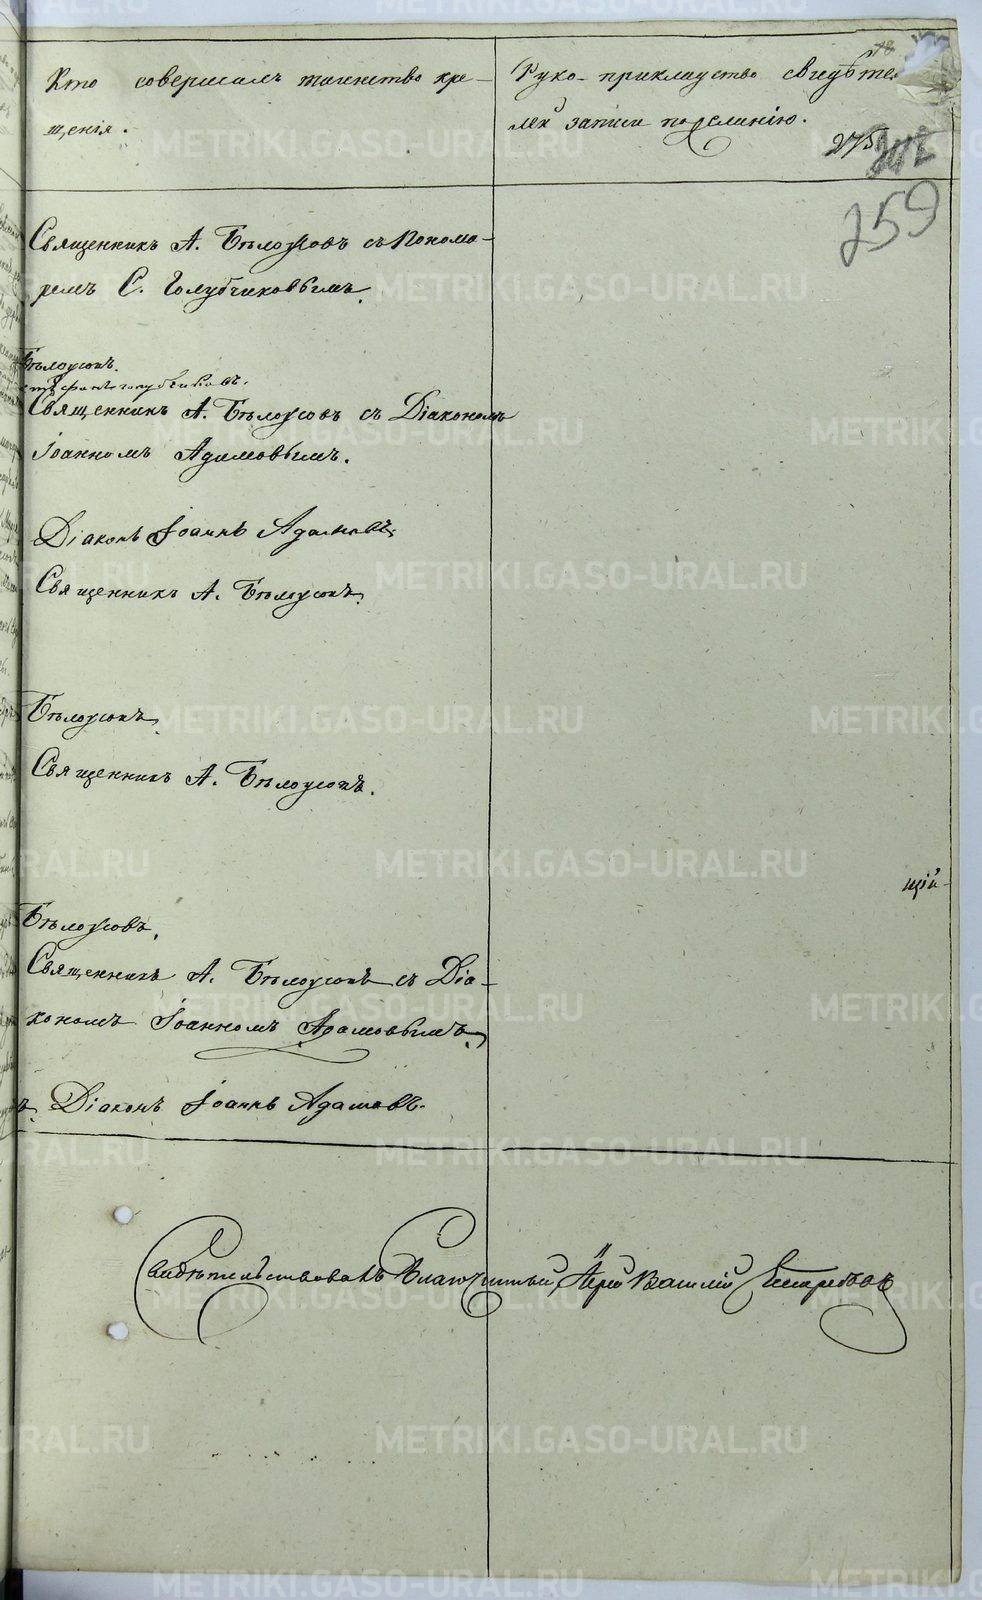 Кто совершалъ таинство кре-
щенія.
Руко-прикладство свидѣте
лей записи по желанію.
275
259
Священникъ А. Бѣлоусовъ съ Понома-
ремъ С. Голубчиковымъ.
Бѣлоусовъ.
Стефанъ Голубчиковъ.
Священникъ А. Бѣлоусовъ съ Діакономъ
Іоанномъ Адамовымъ.
Діаконъ Іоаннъ Адамовъ.
Священникъ А. Бѣлоусовъ.
Бѣлоусовъ.
Священникъ А. Бѣлоусовъ.
щій
Бѣлоусовъ.
Священникъ А. Бѣлоусовъ съ Діа-
кономъ Іоанномъ Адамовымъ.
Діаконъ Іоаннъ Адамовъ.
Свидѣтельствовалъ Благочинный, Іерей Василій
METRIKI.GASO-URAL.RU